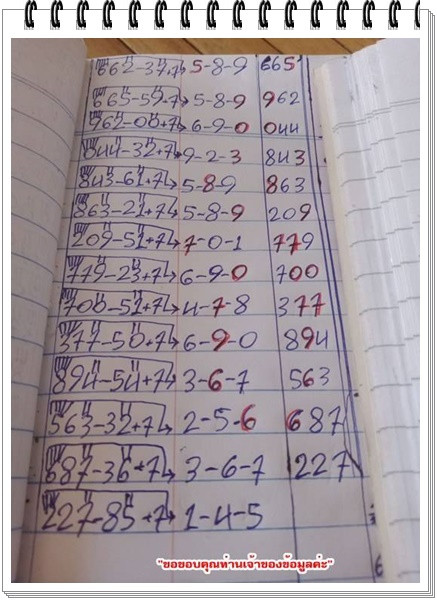 662-37+7 5-8-9 665
665-59+7 5-8-9 962
962-00+7 6-9-0 044
044-32+7 9-2-3 843
843-61+7 5-8-9 863
863-21+7 5-8-9 209
209-51+7 7-0-1 779
779-23+7 6-9-0 700
700-51+7 4-7-8 377
377-50+7 6-9-0 894
894-54+7 3-6-7 563
563-32+7 2-5-6 687
687-36+7 3-6-7 227
227-85+7 1-4-5
"ขอขอบคุณท่านเจ้าของข้อมูลค่ะ"